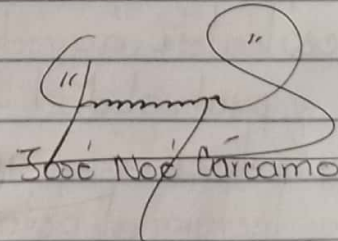 José Noé Cárcamo